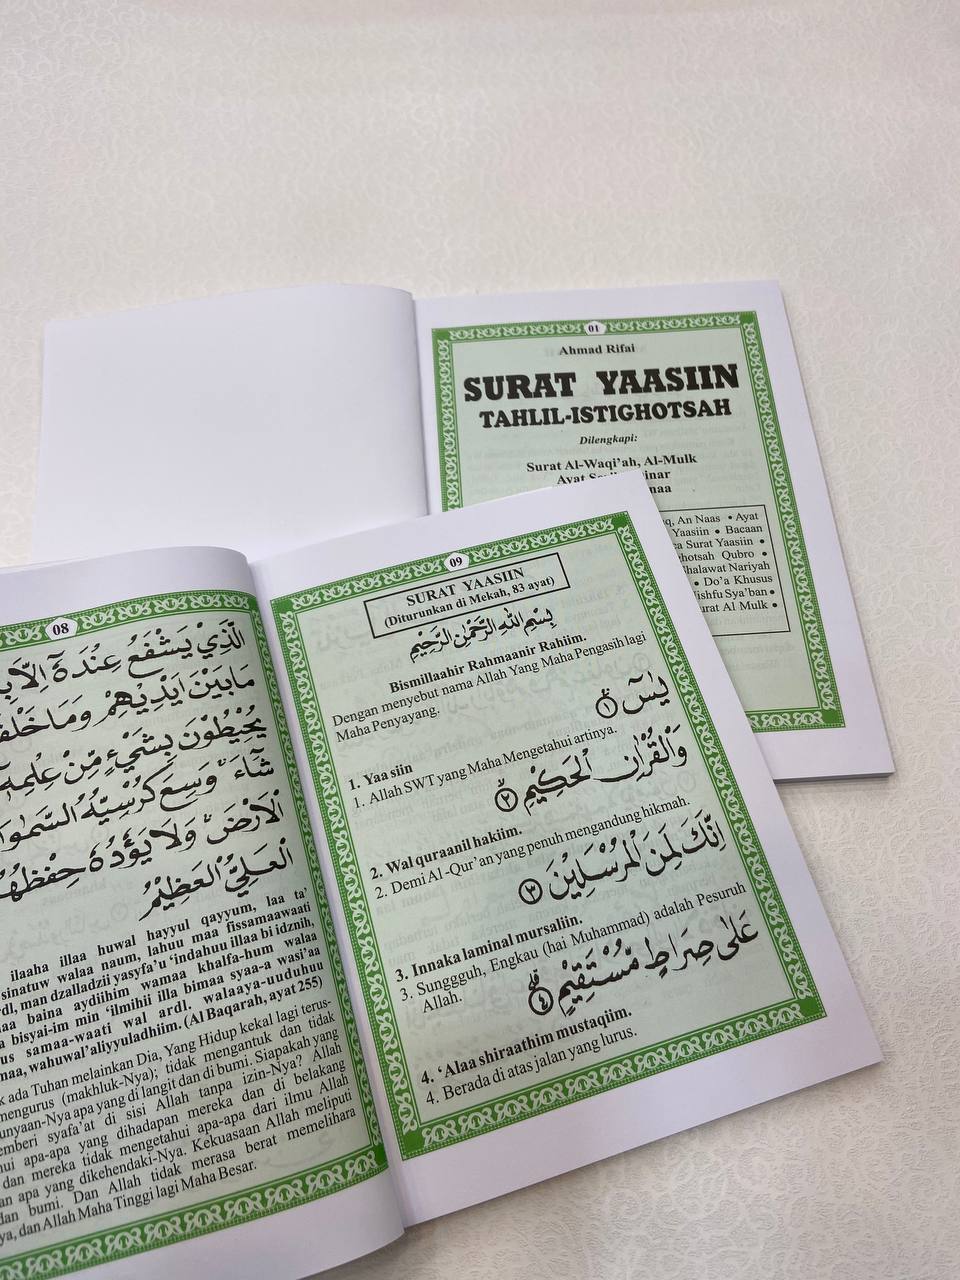 01
Ahmad Rifai
SURAT YAASIIN
TAHLIL-ISTIGHOTSAH
Dilengkapi:
Surat Al-Waqi'ah, Al-Mulk
Ayat
An Naas • Ayat
Yaasiin • Bacaan
Surat Yaasiin •
Qubro •
Nariyah
• Do'a Khusus
Sya'ban •
Al Mulk •
08
الَّذِيْ يَشْفَعُ عِنْدَهٗٓ اِلَّا
مَا بَيْنَ اَيْدِيْهِمْ وَمَا
يُحِيْطُوْنَ بِشَيْءٍ مِّنْ عِلْمِهٖٓ
شَآءَ وَسِعَ كُرْسِيُّهُ
الْاَرْضَ وَلَا يَـُٔوْدُهٗ
الْعَلِيُّ الْعَظِيْمُ
ilaaha illaa huwal hayyul qayyum, laa ta'
sinatuw walaa naum, lahuu maa fissamaawaati
man dzalladzii yasyfa'u 'indahuu illaa bi idznih,
baina aydiihim wamaa khalfa-hum walaa
bisyai-im min 'ilmihii illa bimaa syaa-a wasi'aa
samaa-waati wal ardl. walaaya-uduhuu
wahuwal'aliyyuladhiim. (Al Baqarah, ayat 255)
ada Tuhan melainkan Dia, Yang Hidup kekal lagi terus-
mengurus (makhluk-Nya); tidak mengantuk dan tidak
apa yang di langit dan di bumi. Siapakah yang
syafa'at di sisi Allah tanpa izin-Nya? Allah
apa-apa yang dihadapan mereka dan di belakang
dan mereka tidak mengetahui apa-apa dari ilmu Allah
apa yang dikehendaki-Nya. Kekuasaan Allah meliputi
dan bumi. Dan Allah tidak merasa berat memelihara
dan Allah Maha Tinggi lagi Maha Besar.
09
SURAT YAASIIN
(Diturunkan di Mekah, 83 ayat)
بِسْمِ اللهِ الرَّحْمٰنِ الرَّحِيْمِ
Bismillaahir Rahmaanir Rahiim.
Dengan menyebut nama Allah Yang Maha Pengasih lagi
Maha Penyayang.
يٰسٓ ۝١
1. Yaa siin
1. Allah SWT yang Maha Mengetahui artinya.
وَالْقُرْاٰنِ الْحَكِيْمِ ۝٢
2. Wal quraanil hakiim.
2. Demi Al -Qur'an yang penuh mengandung hikmah.
اِنَّكَ لَمِنَ الْمُرْسَلِيْنَ ۝٣
3. Innaka laminal mursaliin.
3. Sunggguh, Engkau (hai Muhammad) adalah Pesuruh
Allah.
عَلٰى صِرَاطٍ مُّسْتَقِيْمٍ ۝٤
4. 'Alaa shiraathim mustaqiim.
4. Berada di atas jalan yang lurus.